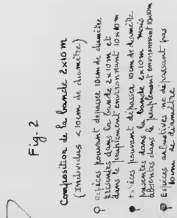 Fig. 2
Composition de la bande 2x10m
(Individus < 10cm de diamètre)
espèces pouvant dépasser 10cm de diamètre
présentes dans la bande 2x10m et
dans le peuplement environnant 10x10m
espèces pouvant dépasser 10cm de diamètre
présentes dans la bande 2x10m mais
absentes dans le peuplement environnant 10x10m
Espèces arbustives ne dépassant pas
10cm de diamètre